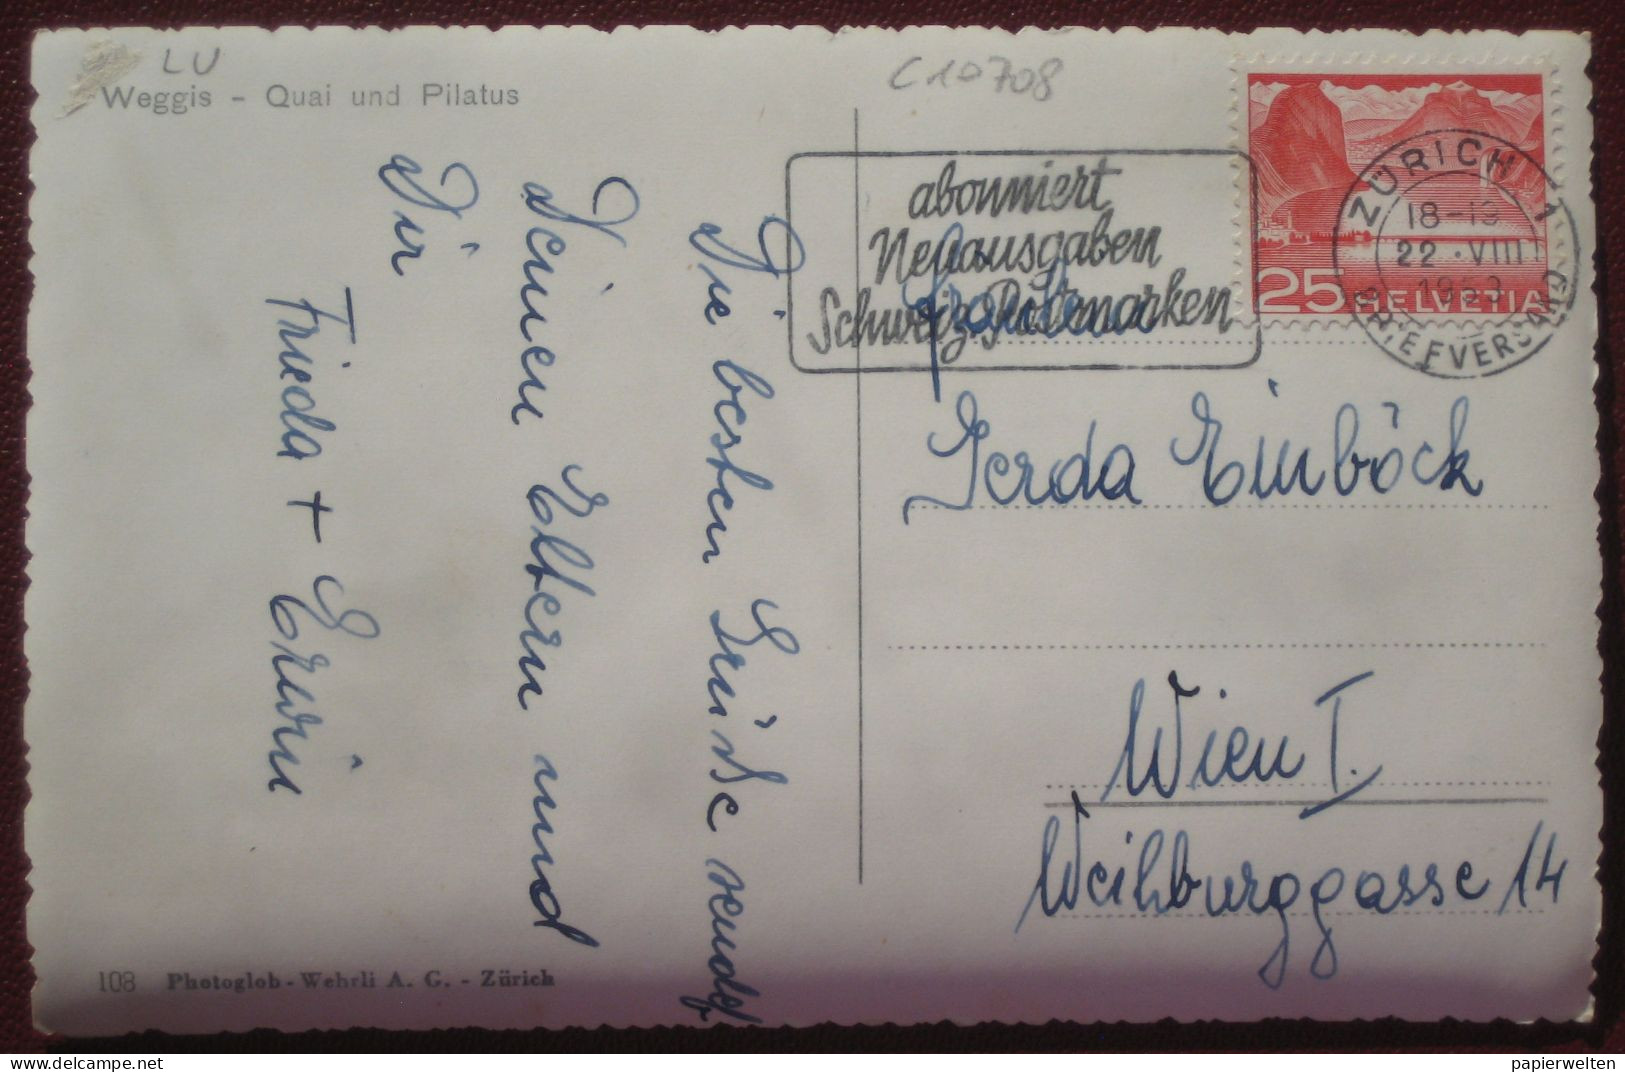 LU
Weggis - Quai und Pilatus
C10708
Die besten Grüsse sendet
Deinen Eltern und
Dir
Frieda + Erwin
108 Photoglob-Wehrli A. G. - Zürich
abonniert
Neuausgaben
Schweiz. Postmarken
25 HELVETIA
ZÜRICH 1
18-19
22.VIII
1953
BRIEFVERSAND
Fräulein
Gerda Einböck
Wien I.
Weihburggasse 14
papierwelten